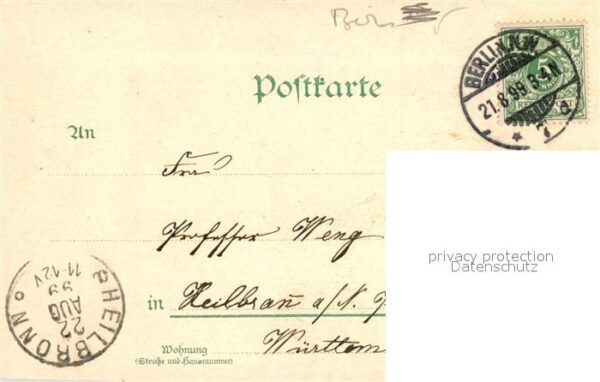 BERLIN N.W.
21.8.99.3-4N
* 7 a
5
Postkarte
An
Frau
Professor Weng
in Heilbronn a/N.
Württem
Wohnung
(Straße und Hausnummer)
HEILBRONN
22
AUG
99
11-12V
privacy protection
Datenschutz